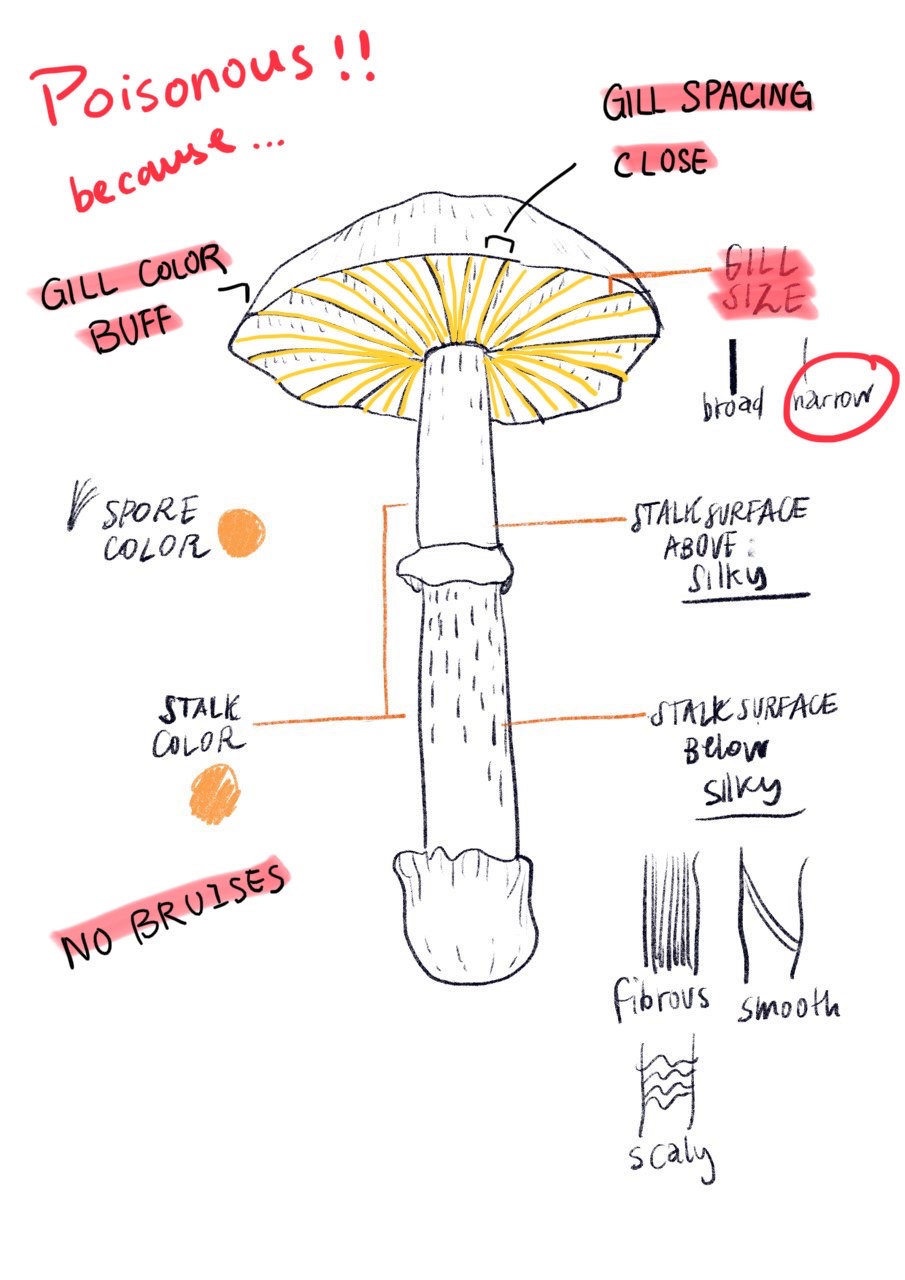 Poisonous !!
because...
GILL SPACING
CLOSE
GILL COLOR
BUFF
GILL
SIZE
broad
narrow
SPORE
COLOR
STALK SURFACE
ABOVE:
Silky
STALK
COLOR
STALK SURFACE
Below
Silky
NO BRUISES
fibrous
smooth
scaly